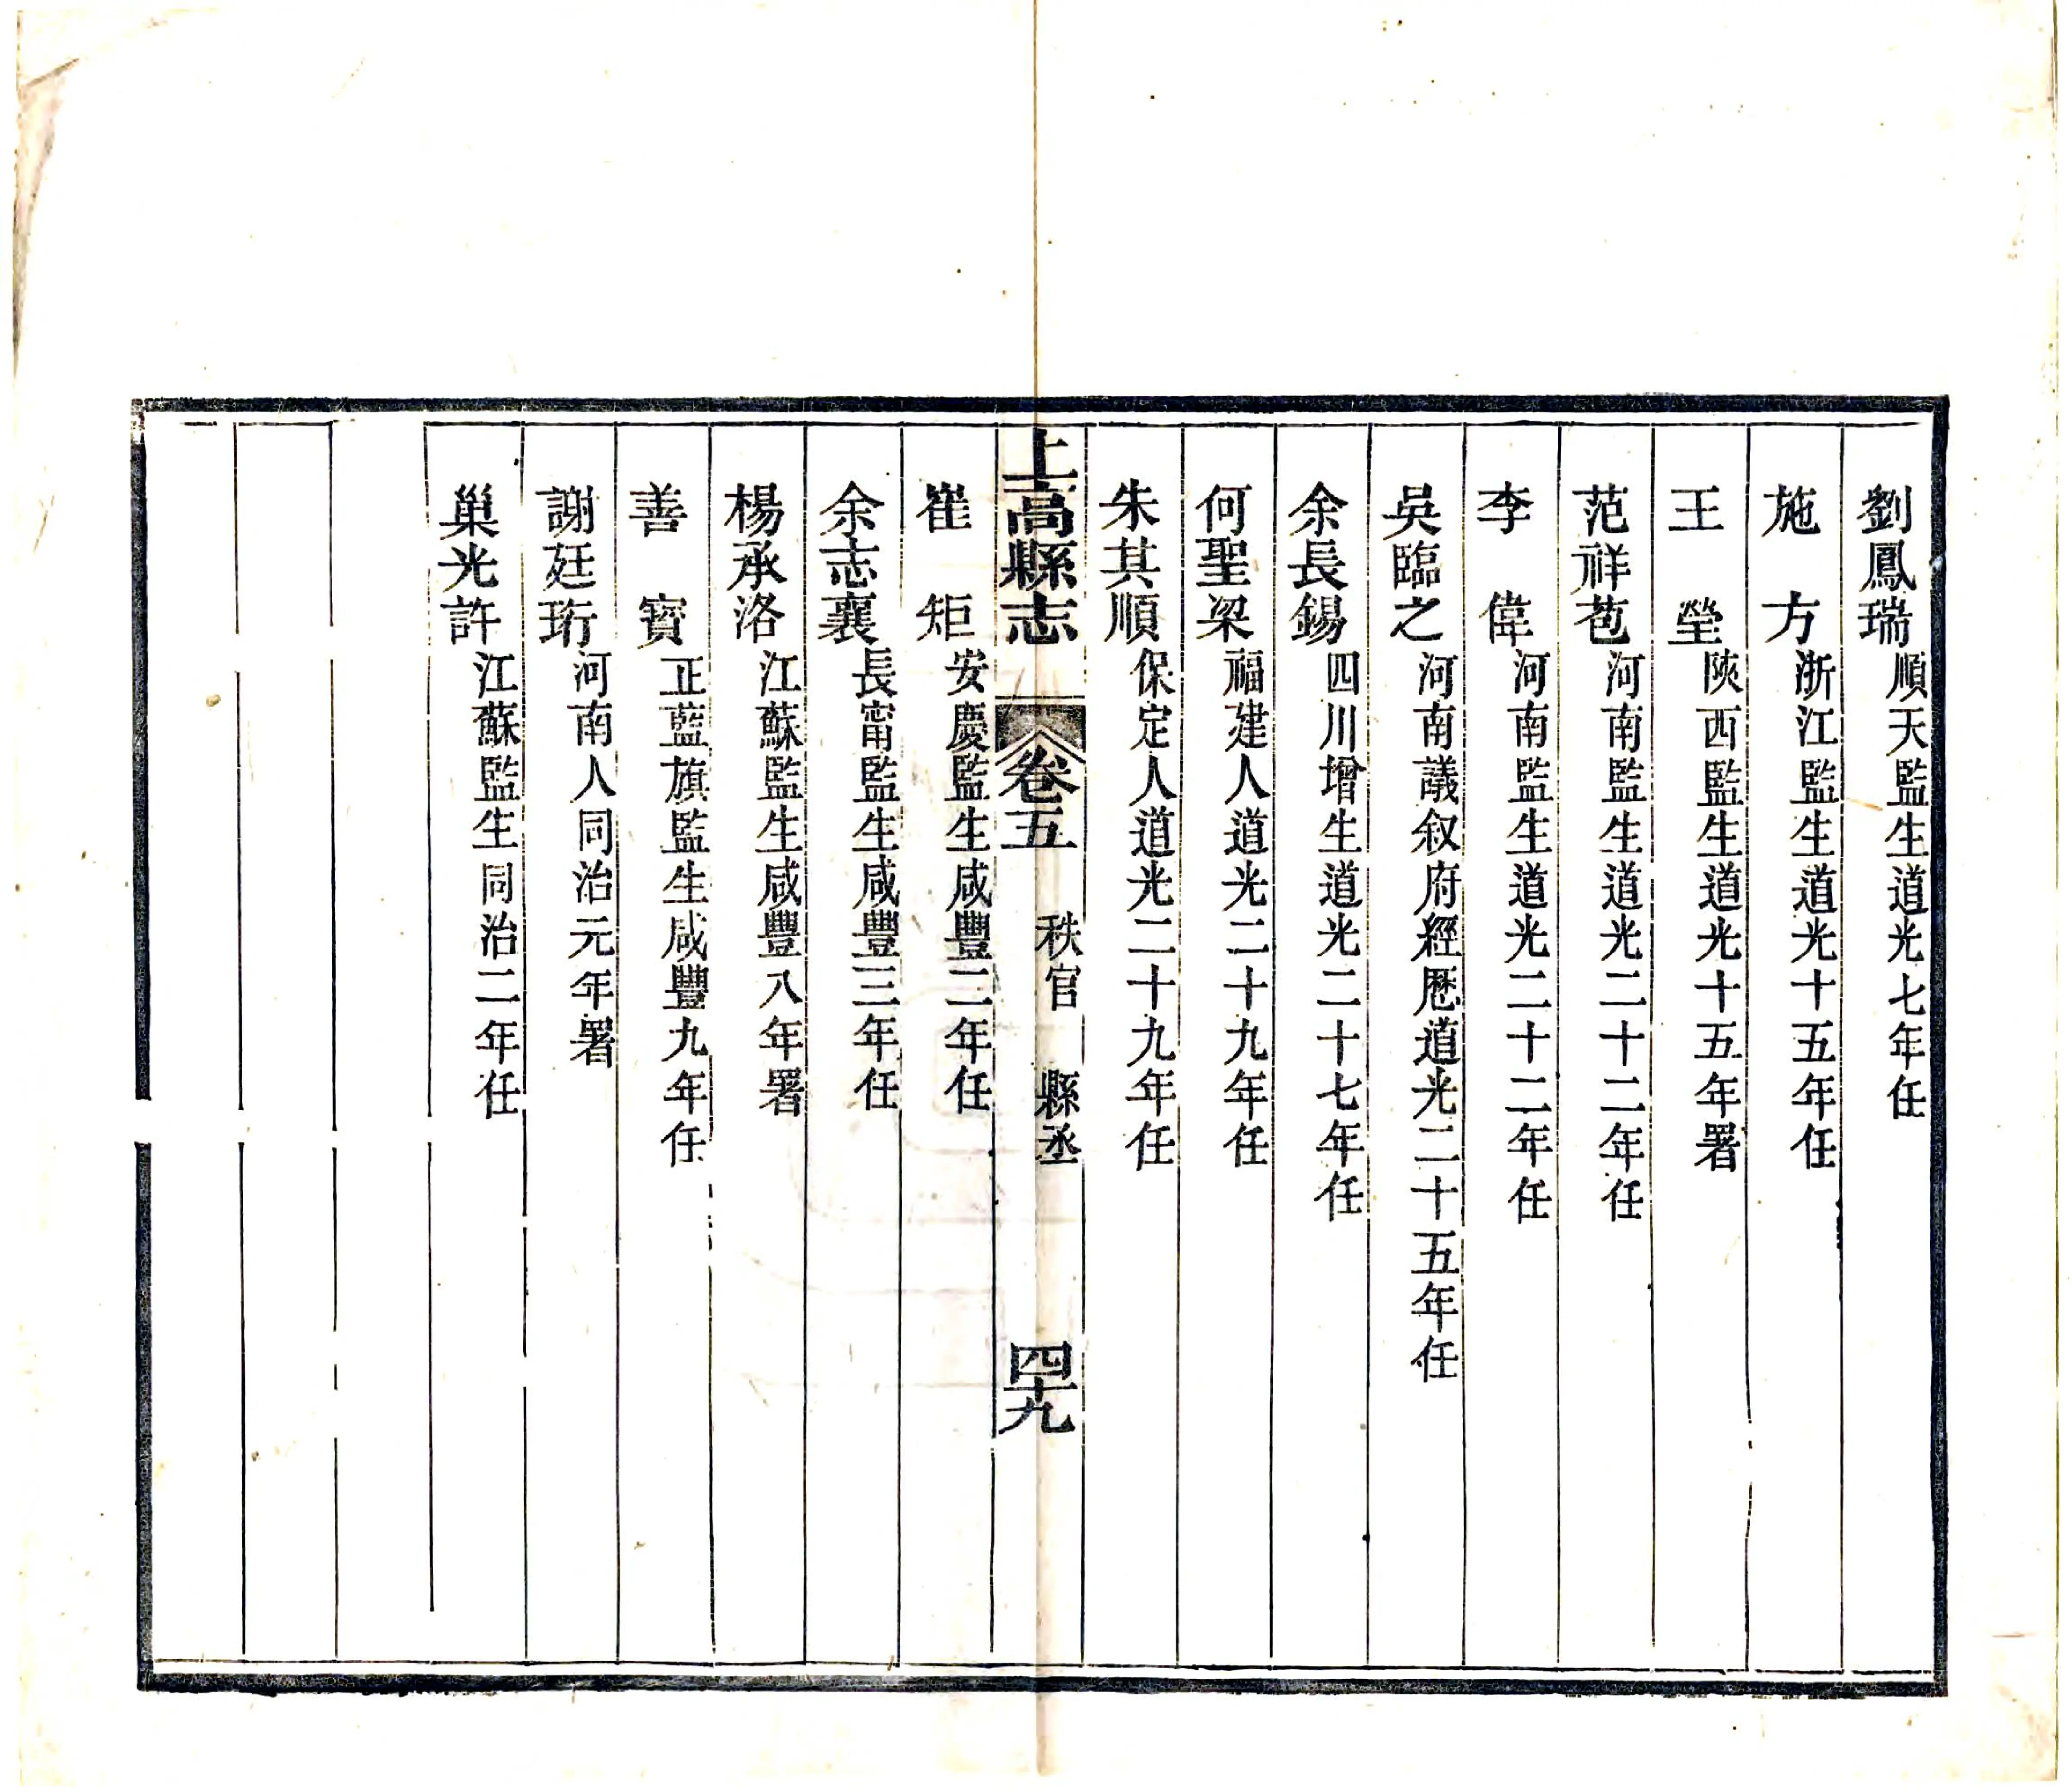 劉鳳瑞順天監生道光七年任
施方浙江監生道光十五年任
王瑩陝西監生道光十五年署
范祥苞河南監生道光二十二年任
李偉河南監生道光二十二年任
吳臨之河南議叙府經厯道光二十五年任
余長錫四川增生道光二十七年任
何聖梁福建人道光二十九年任
朱其順保定人道光二十九年任
上高縣志 卷五 秩官 縣丞 四十九
崔矩安慶監生咸豐二年任
余志襄長甯監生咸豐三年任
楊承洛江蘇監生咸豐八年署
善寶正藍旗監生咸豐九年任
謝廷珩河南人同治元年署
巢光許江蘇監生同治二年任